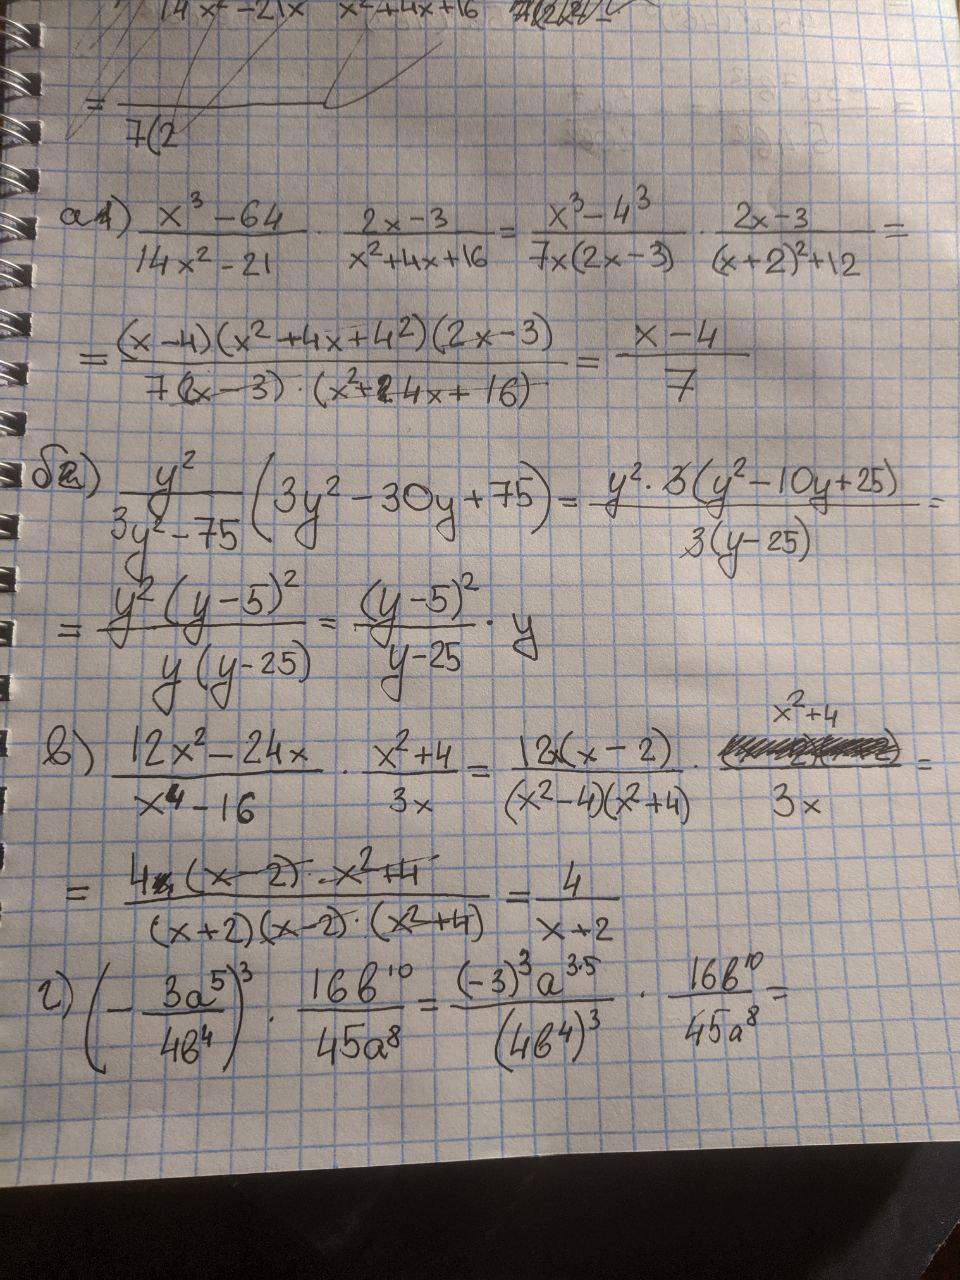 14x² - 21x x² + 4x + 16
= ─── / 7(2
а1) (x³ - 64)/(14x² - 21) · (2x - 3)/(x² + 4x + 16) = (x³ - 4³)/(7x(2x - 3)) · (2x - 3)/((x + 2)² + 12) =
= ((x - 4)(x² + 4x + 4²)(2x - 3))/(7(2x - 3) · (x² + 4x + 16)) = (x - 4)/7
б2) y²/(3y² - 75) (3y² - 30y + 75) = (y² · 3(y² - 10y + 25))/(3(y - 25)) =
= (y² (y - 5)²)/(y (y - 25)) = ((y - 5)²)/(y - 25) · y
в) (12x² - 24x)/(x⁴ - 16) · (x² + 4)/(3x) = (12x(x - 2))/((x² - 4)(x² + 4)) · (x² + 4)/(3x) =
= (4 (x - 2) · x² + 4)/((x + 2)(x - 2) · (x² + 4)) = 4/(x + 2)
г) (- 3a⁵/4в⁴)³ · 16в¹⁰/45a⁸ = ((-3)³ a³·⁵)/((4в⁴)³) · 16в¹⁰/45a⁸ =